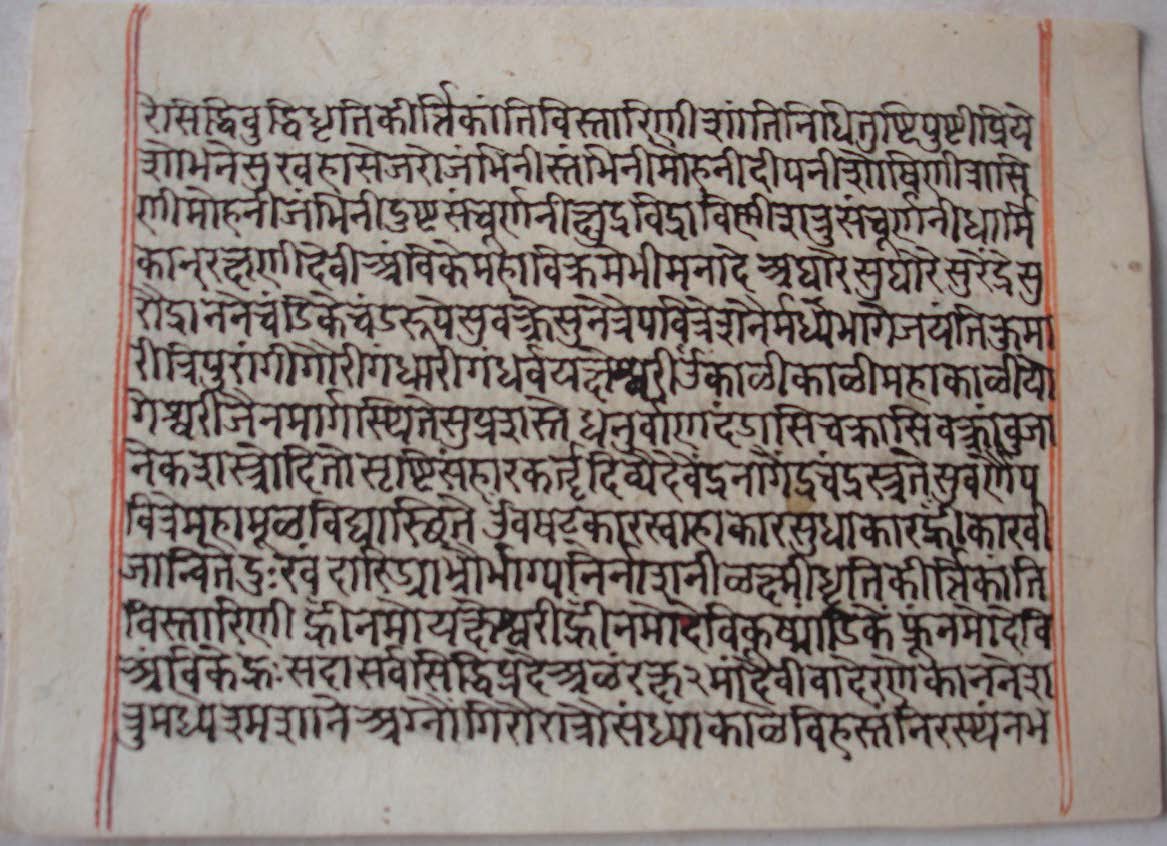 रोसिद्धिवुद्धिधृतिकीर्त्तिकांतिविस्तारिणीशांतिनिधितुष्टिपुष्टीप्रिये
शोभनेसुखहासेजरोजंभिनीस्तंभिनीमोहनीदीपनीशोषिणीत्रासि
णीमोहनीजंभिनीदुष्टसंचूर्णनीक्षुद्रविद्राविणीशत्रुसंचूर्णनीधार्मि
कानरक्षणीदेवीअंविकेमहाविक्रमेभीमनादेअघोरेसुघोरेसुरेंद्रेसु
रौद्राननेचंडिकेचंडरूपेसुवक्त्रेसुनेत्रेपवित्रे मध्येभागेजयंतिकुमा
रीत्रिपुरांगीगौरीगंधारीगंधर्वयक्षेश्वरी काळीकाळीमहाकाळीयो
गेश्वरीजैनमार्गस्थितेसुप्रशस्ते धनुर्वाणदंडासिचक्रासिवक्त्रांवुजा
नेकशस्त्रोदितोसृष्टिसंहारकर्तृदिव्येदेवेंद्रनागेंद्रचंद्रस्तुतेसुवर्णेप
वित्रेमहामूळविद्यास्थिते वषट्कारस्वाहाकारसुधाकारह्रींकारवी
जान्वितेदुःखदारिद्र्य निर्नाशनीळक्ष्मीधृतिकीर्त्तिकांति
विस्तारिणी ह्रींनमोयक्षेश्वरीह्रींनमोदेविकूष्मांडिके नमोदेवि
अंविकेह्रःसदासर्वसिद्धिप्रदेअळंरक्ष२मांदेवीवादेरणेकाननेश
त्रुमध्येस्मशाने अग्नौगिरौरात्रोसंध्याकाळे